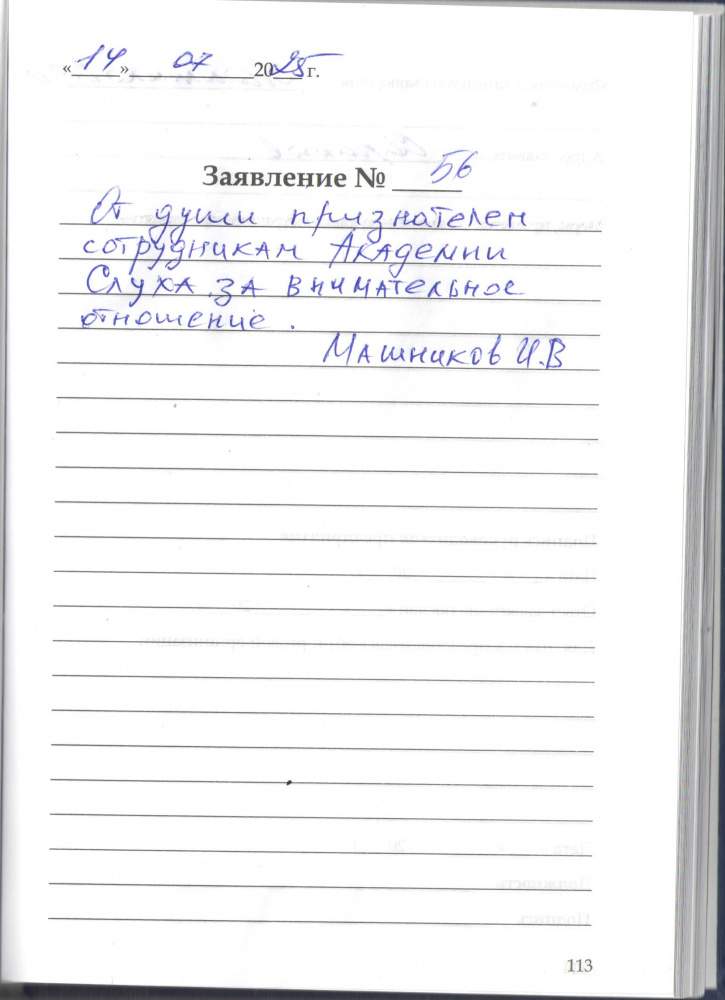 «14» 07 2025 г.
Заявление № 56
От души признателен
сотрудникам Академии
Слуха за внимательное
отношение.
Машников И.В
113